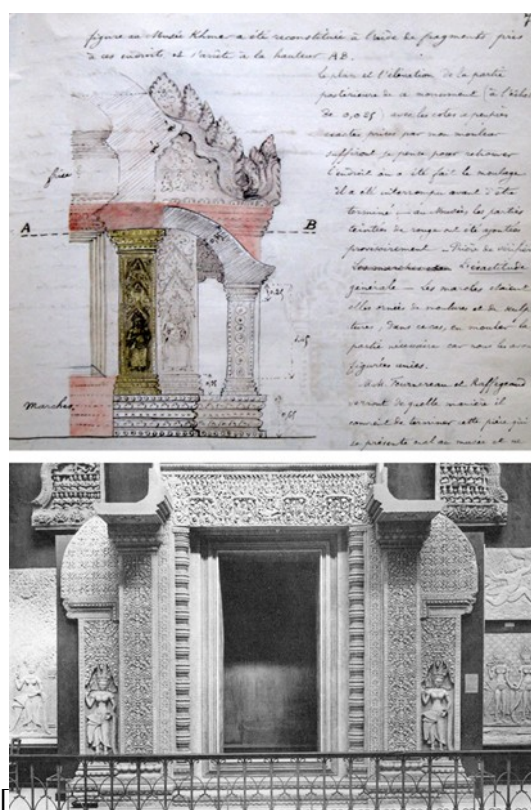 figuré au Musée Khmer a été reconstituée à l'aide de fragments, pris
à ces endroits, et s'arrête à la hauteur AB.
Le plan et l'élévation de la partie
postérieure de ce monument (à l'échelle
de 0,025) avec les cotes à peu près
exactes prises par mon mouleur
suffiront je pense pour retrouver
l'endroit où a été fait le moulage
il a été interrompu avant d'être
terminé – au Musée, les parties
teintées de rouge ont été ajoutées
provisoirement –
générale – Les marches étaient
elles ornées de moulures et de sculp
tures, dans ce cas, en mouler la
partie nécessaire car nous les avons
figurées unies.
M.M. Fournereau et Raffegeaud
verront de quelle manière il
convient de terminer cette pièce qui
se présente mal au musée et ne
frise
A
B
Marches